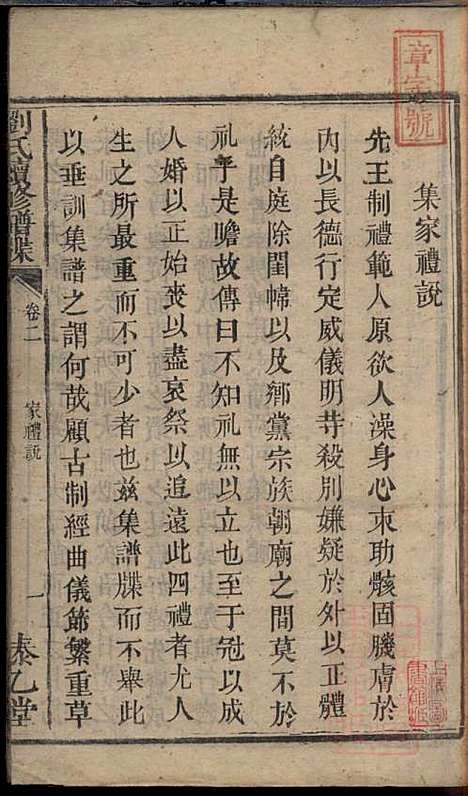 集家禮說
先王制禮範人原欲人澡身心束肋骸固腠膚於
內以長德行定威儀明等殺別嫌疑於外以正體
統自庭除閨幃以及鄉黨宗族朝廟之間莫不於
礼乎是贍故傳曰不知礼無以立也至于冠以成
人婚以正始喪以盡哀祭以追遠此四禮者尤人
生之所最重而不可少者也兹集譜牒而不舉此
以垂訓集譜之謂何哉顧古制經曲儀節繁重草
劉氏續修譜牒
卷二
家禮說
一
泰乙堂
章字號